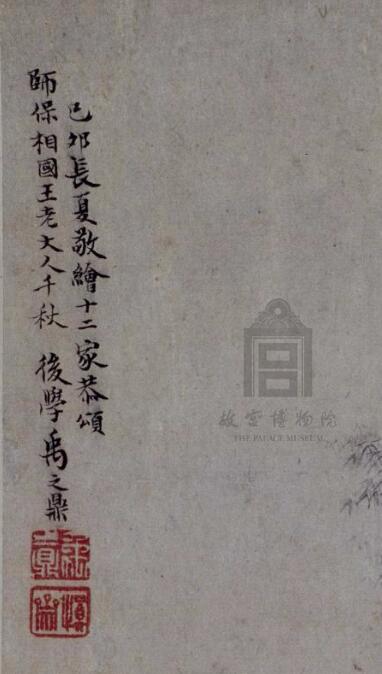 己卯長夏敬繪十二家恭頌
師保相國王老大人千秋 後學禹之鼎
故宮博物院
THE PALACE MUSEUM